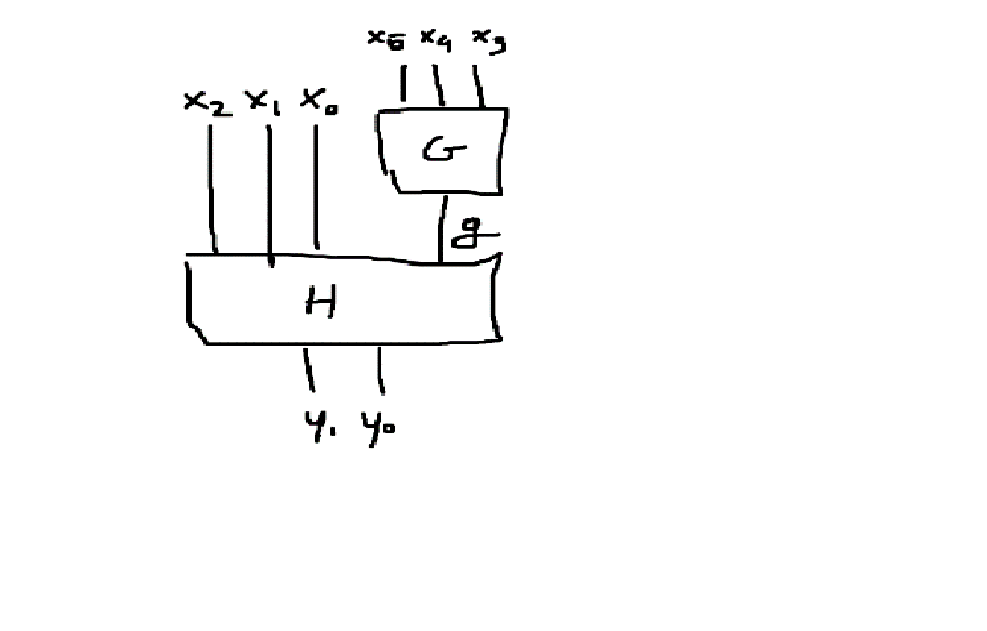 x₅ x₄ x₃
x₂ x₁ x₀
G
g
H
y₁ y₀